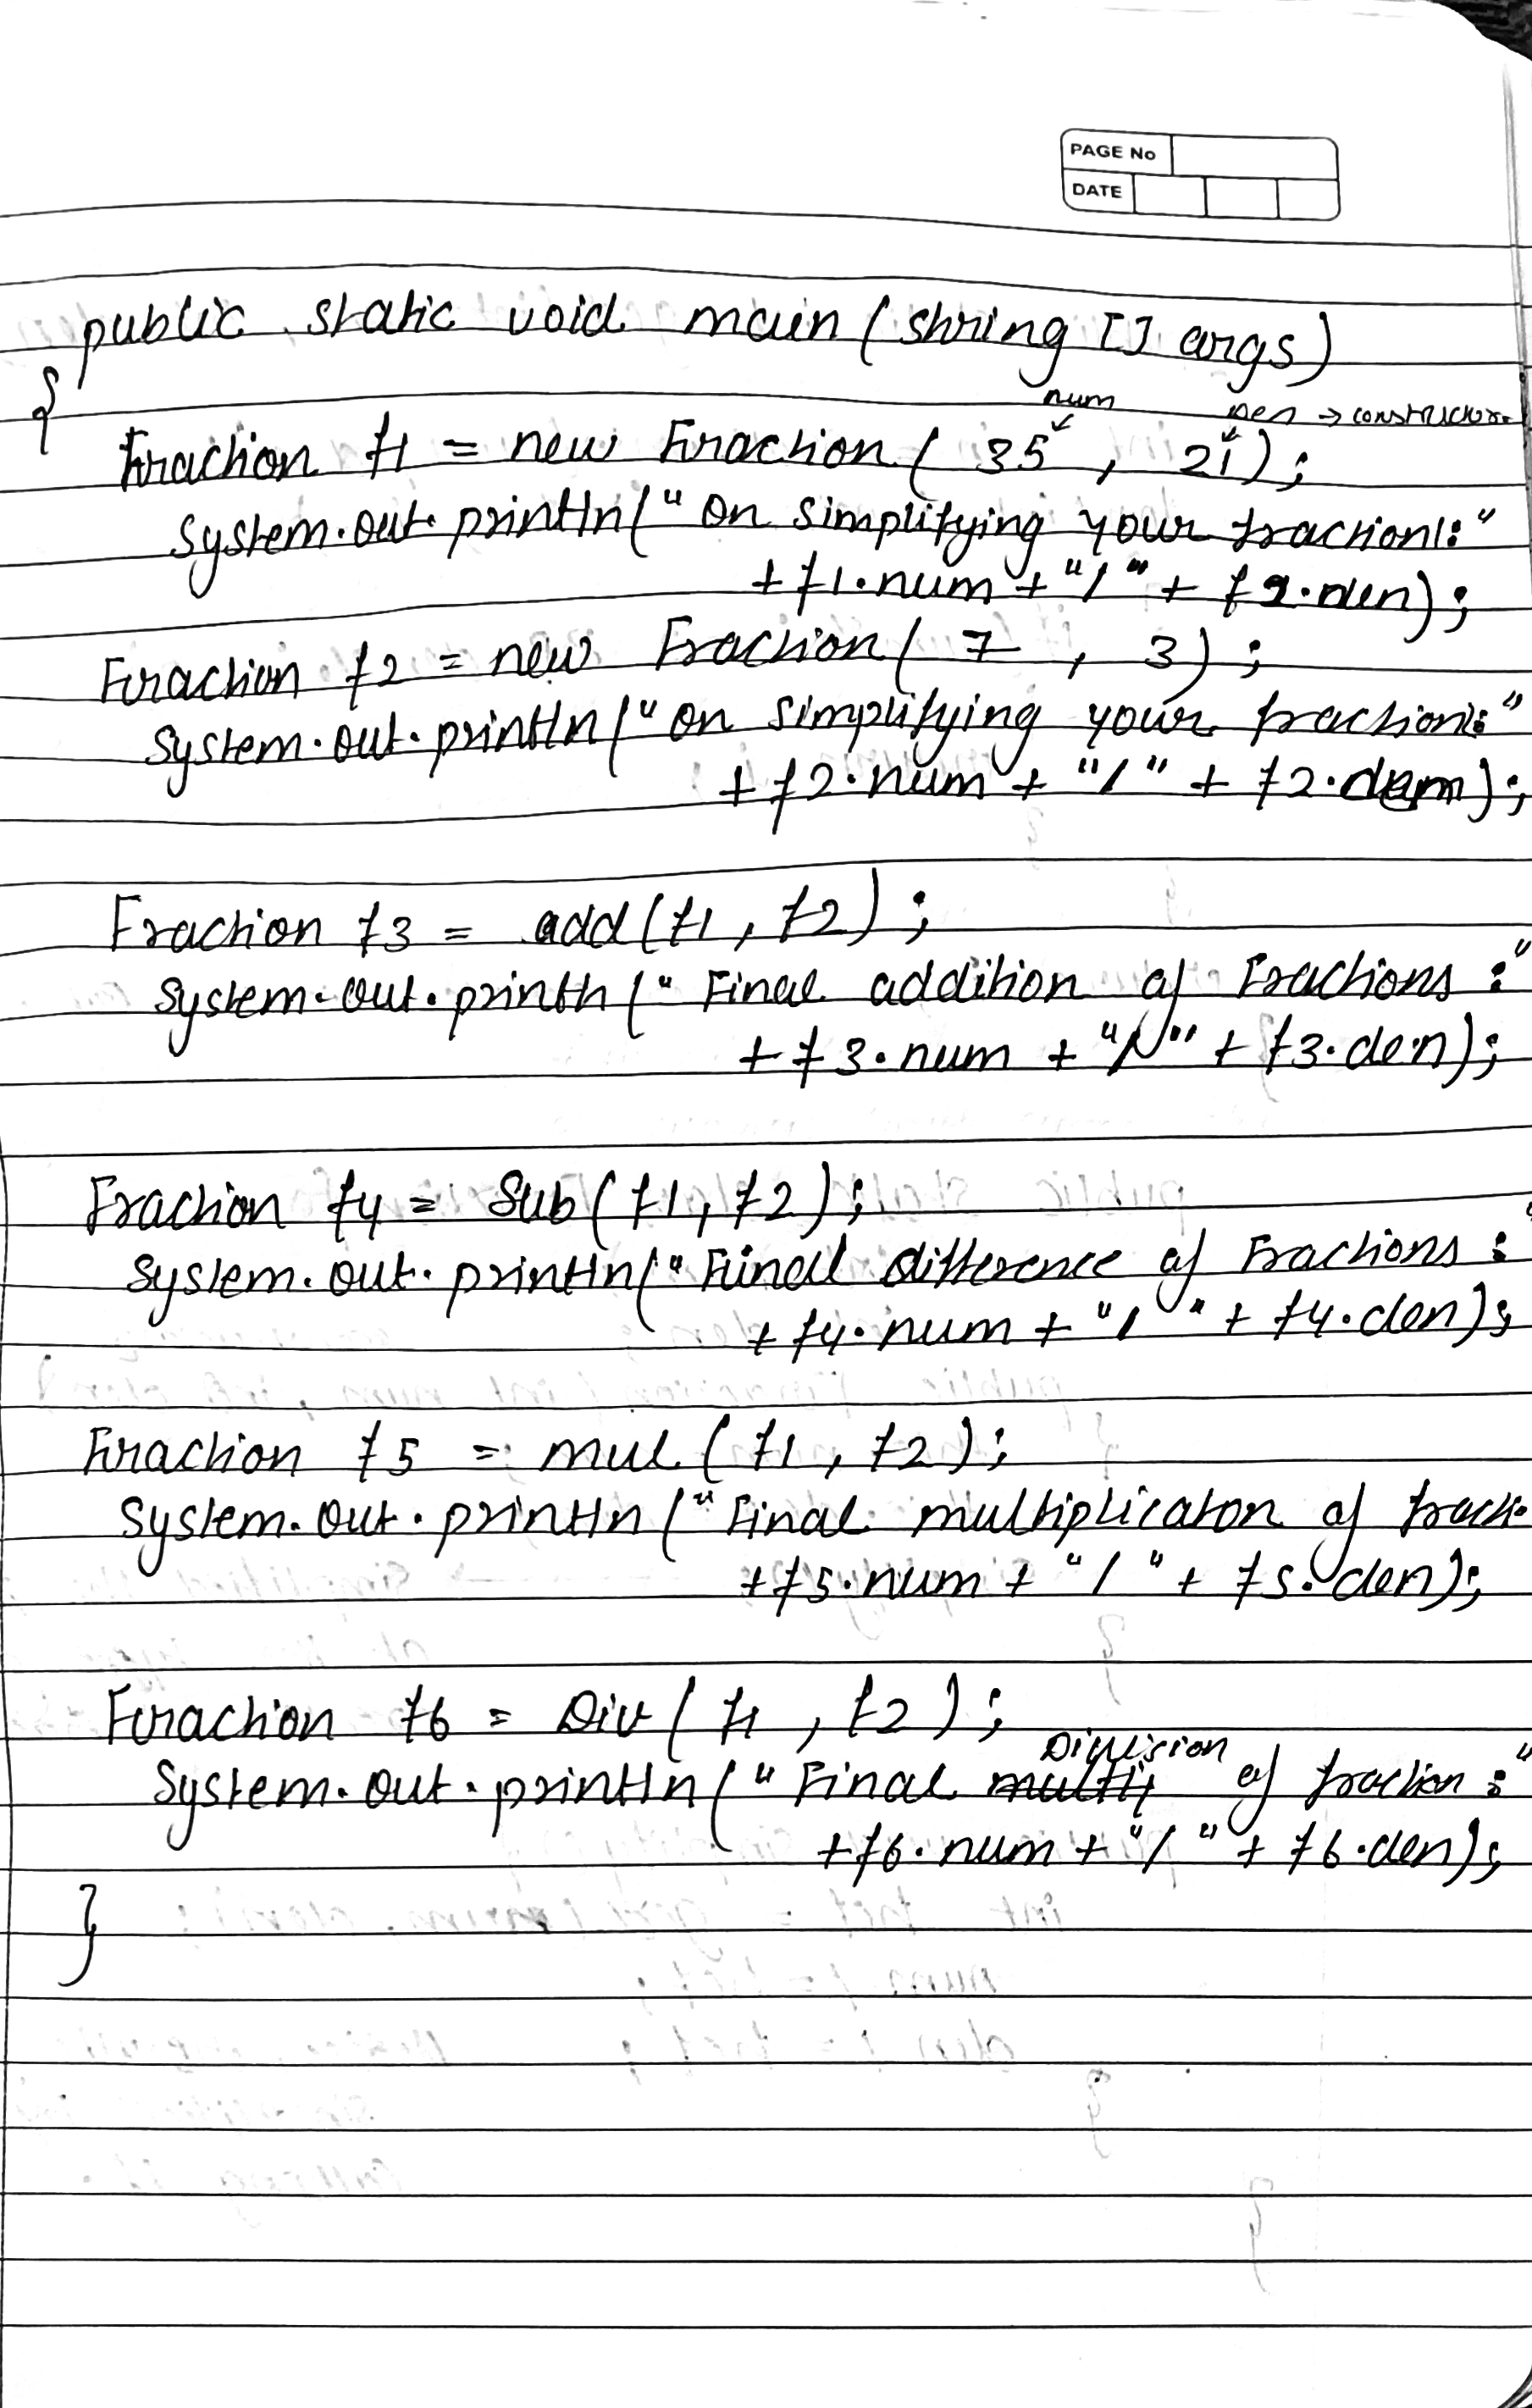 PAGE No
DATE
public static void main (string [] args)
{
num den → constructor
Fraction f1 = new Fraction ( 35 , 21 ) ;
System.out.println(" on simplifying your fraction!:"
+ f1.num + "/" + f2.den) ;
Fraction f2 = new Fraction ( 7 , 3 ) ;
System.out.println("on simplifying your fraction:"
+ f2.num + "/" + f2.den) ;
Fraction f3 = add (f1 , f2 ) ;
System.out.println (" Final addition of Fractions :"
+ f3.num + "/" + f3.den) ;
Fraction f4 = Sub ( f1 , f2 ) ;
System.out.println (" Final difference of Fractions :"
+ f4.num + "/" + f4.den) ;
Fraction f5 = mul ( f1 , f2 ) ;
System.out.println (" Final multiplicaton of
+ f5.num + "/" + f5.den) ;
Fraction f6 = Div ( f1 , f2 ) ;
System.out.println (" Final Division of fraction :"
+ f6.num + "/" + f6.den) ;
}